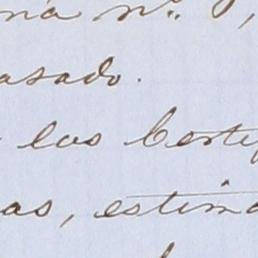 na nº 8,
asado.
los Certif
as, estima